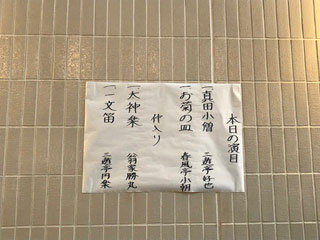 本日の演目
一真田小僧 三遊亭好也
一お菊の皿 春風亭小朝
仲入り
一太神楽 翁家勝丸
一一文笛 三遊亭円楽